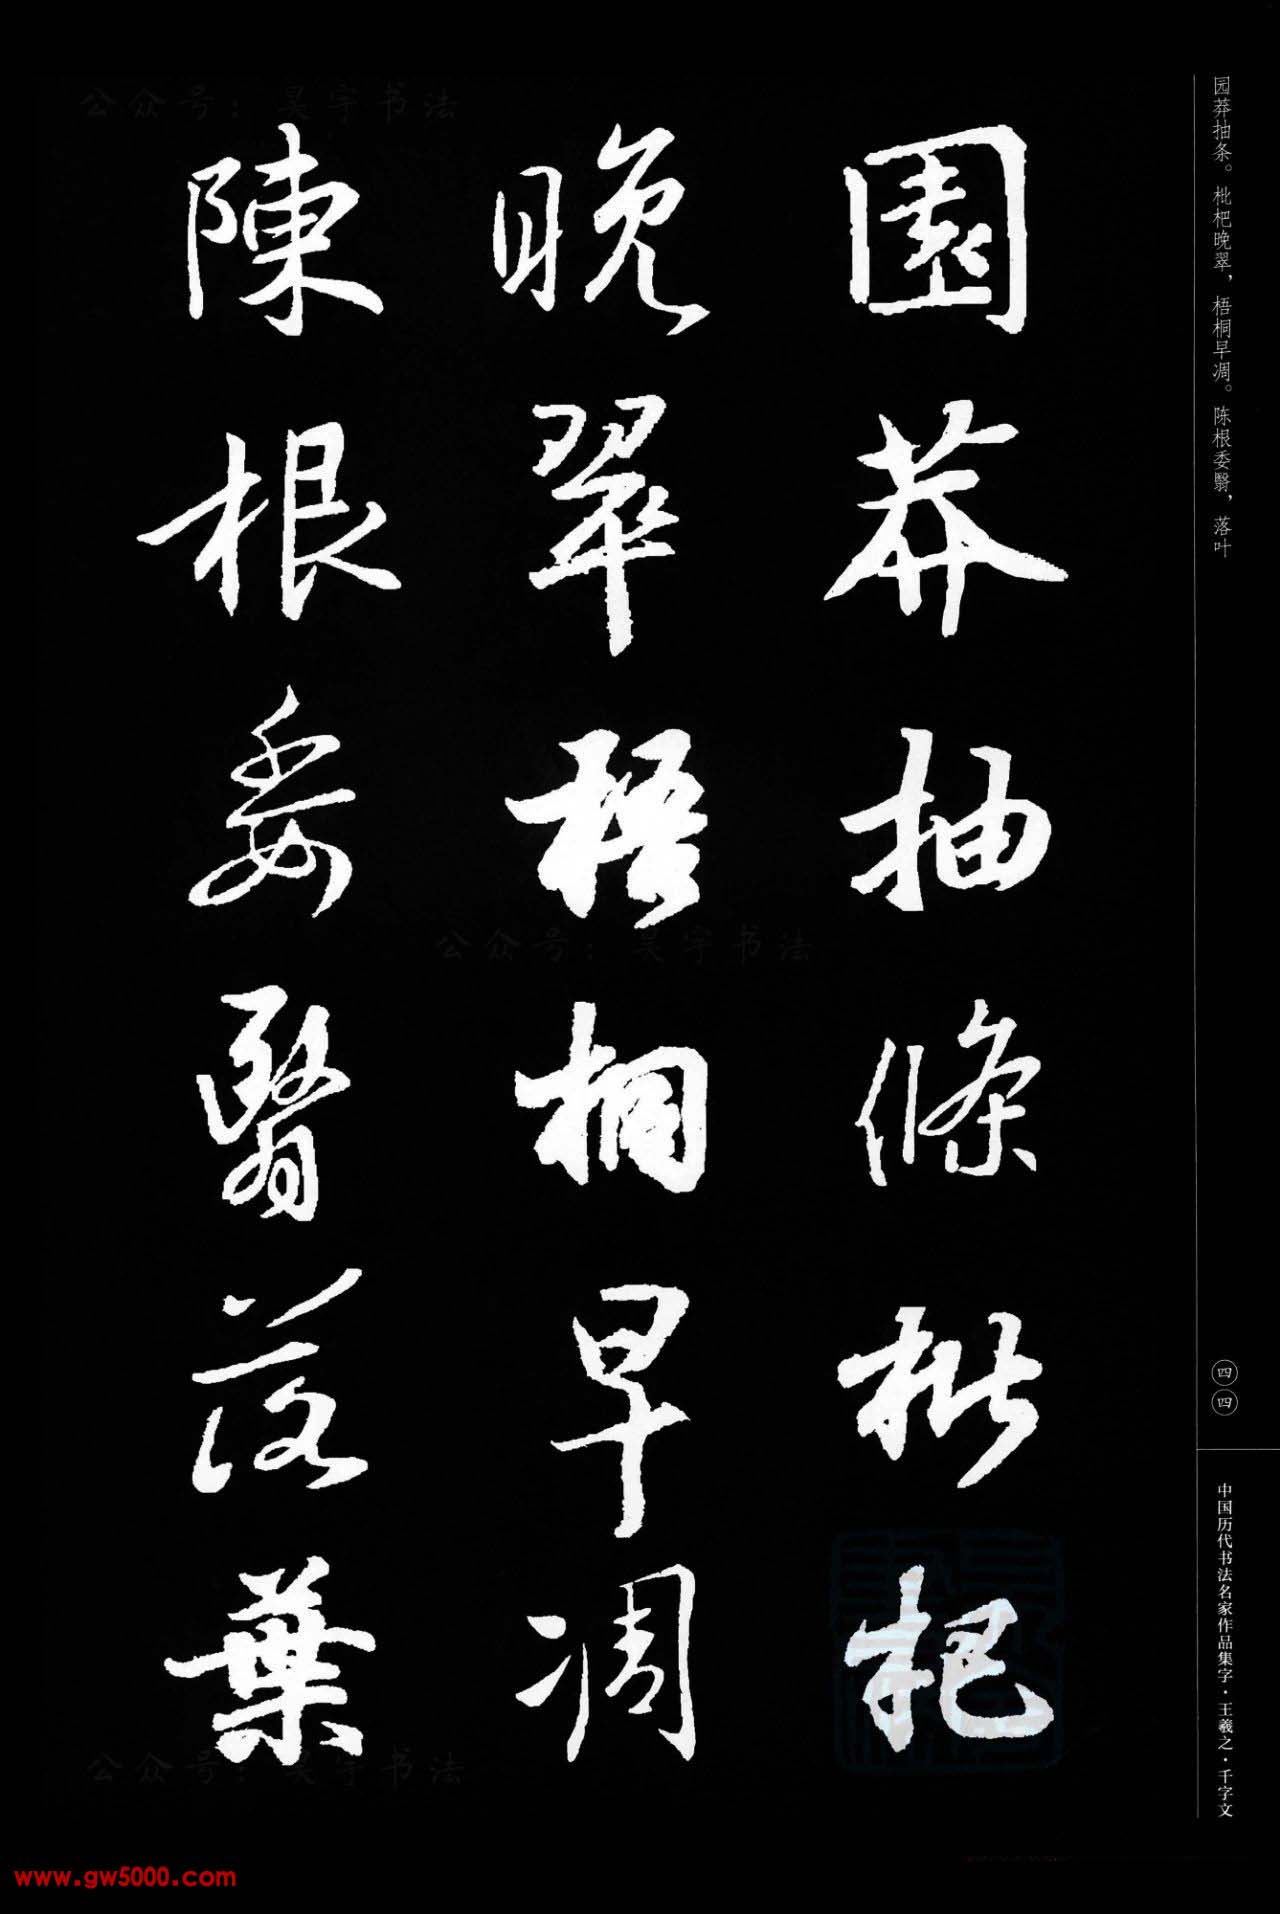 园莽抽条。枇杷晚翠，梧桐早凋。陈根委翳，落叶
園莽抽條枇杷
晚翠梧桐早凋
陳根委翳落葉
四四
中国历代书法名家作品集字·王羲之·千字文
公众号：昊宇书法
公众号：昊宇书法
公众号：昊宇书法
www.gw5000.com